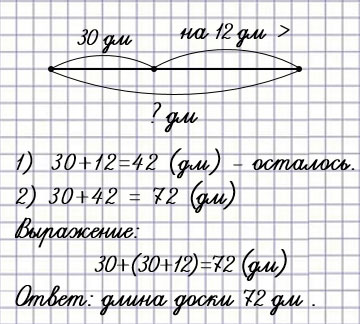 30 дм на 12 дм >
? дм
1) 30+12=42 (дм) - осталось.
2) 30+42 = 72 (дм)
Выражение:
30+(30+12)=72 (дм)
Ответ: длина доски 72 дм .